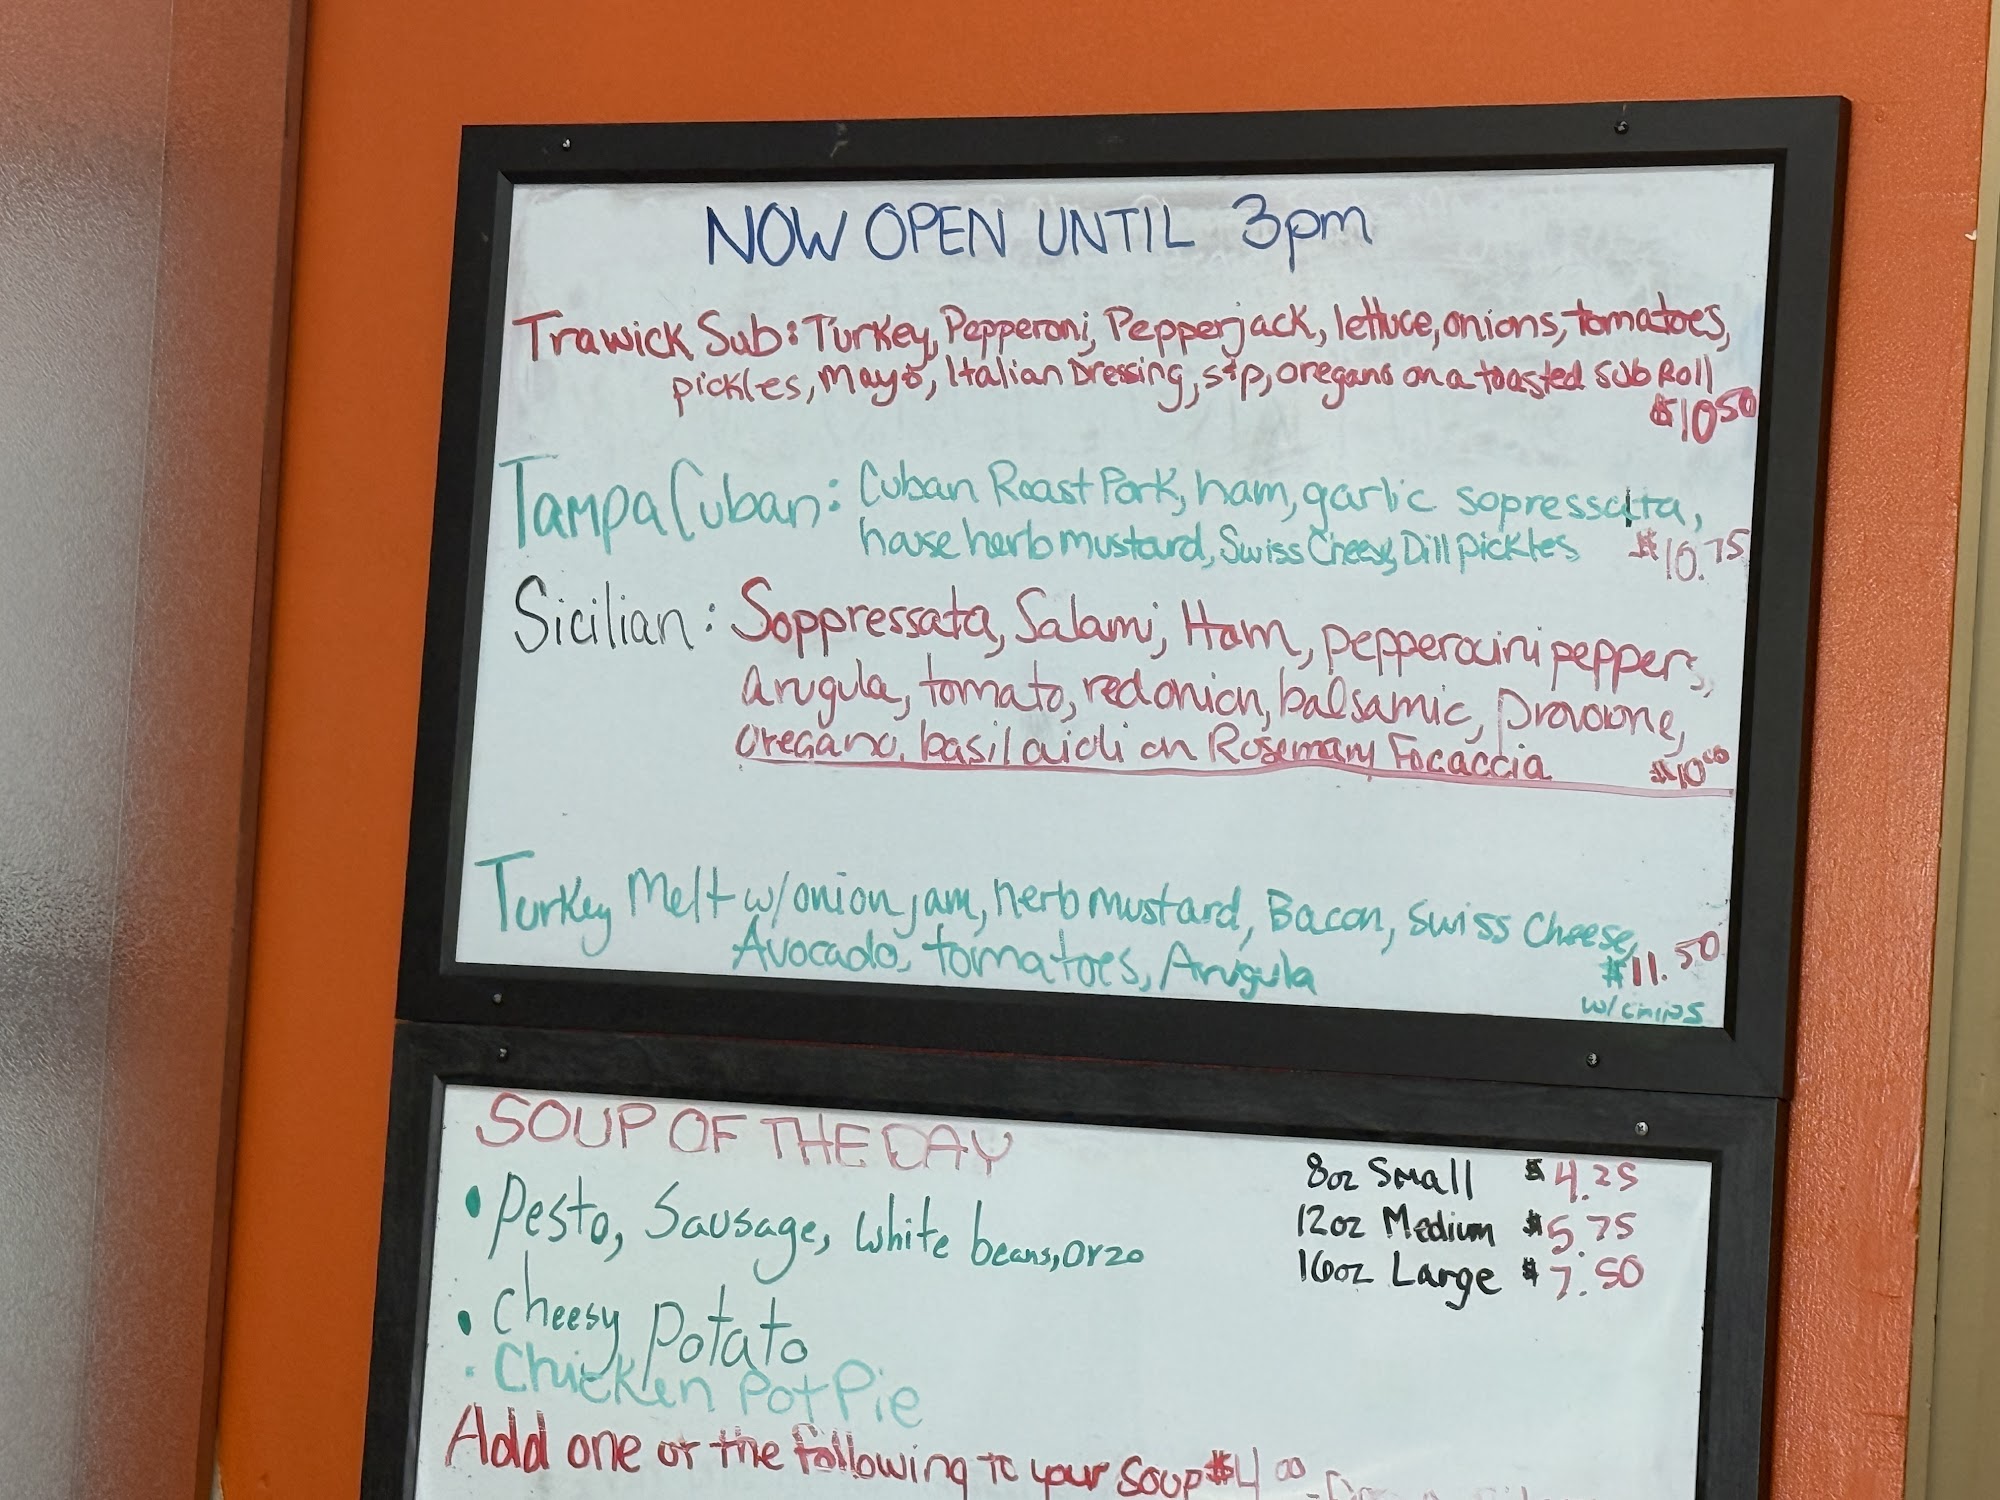 NOW OPEN UNTIL 3pm
Trawick Sub: Turkey, Pepperoni, Pepperjack, lettuce, onions, tomatoes,
pickles, Mayo, Italian Dressing, s+p, oregano on a toasted sub Roll
$10.50
Tampa Cuban: Cuban Roast Pork, ham, garlic sopressatta,
house herb mustard, Swiss Cheese, Dill pickles $10.75
Sicilian: Soppressata, Salami, Ham, pepperocini peppers,
arugula, tomato, red onion, balsamic, provolone,
oregano, basil aioli on Rosemary Focaccia $10.00
Turkey Melt w/ onion jam, herb mustard, Bacon, Swiss Cheese,
Avocado, tomatoes, Arugula $11.50
w/chips
SOUP OF THE DAY
• Pesto, Sausage, white beans, orzo
• Cheesy Potato
• Chicken Pot Pie
8oz Small $4.25
12oz Medium $5.75
16oz Large $7.50
Add one of the following to your soup $4.00